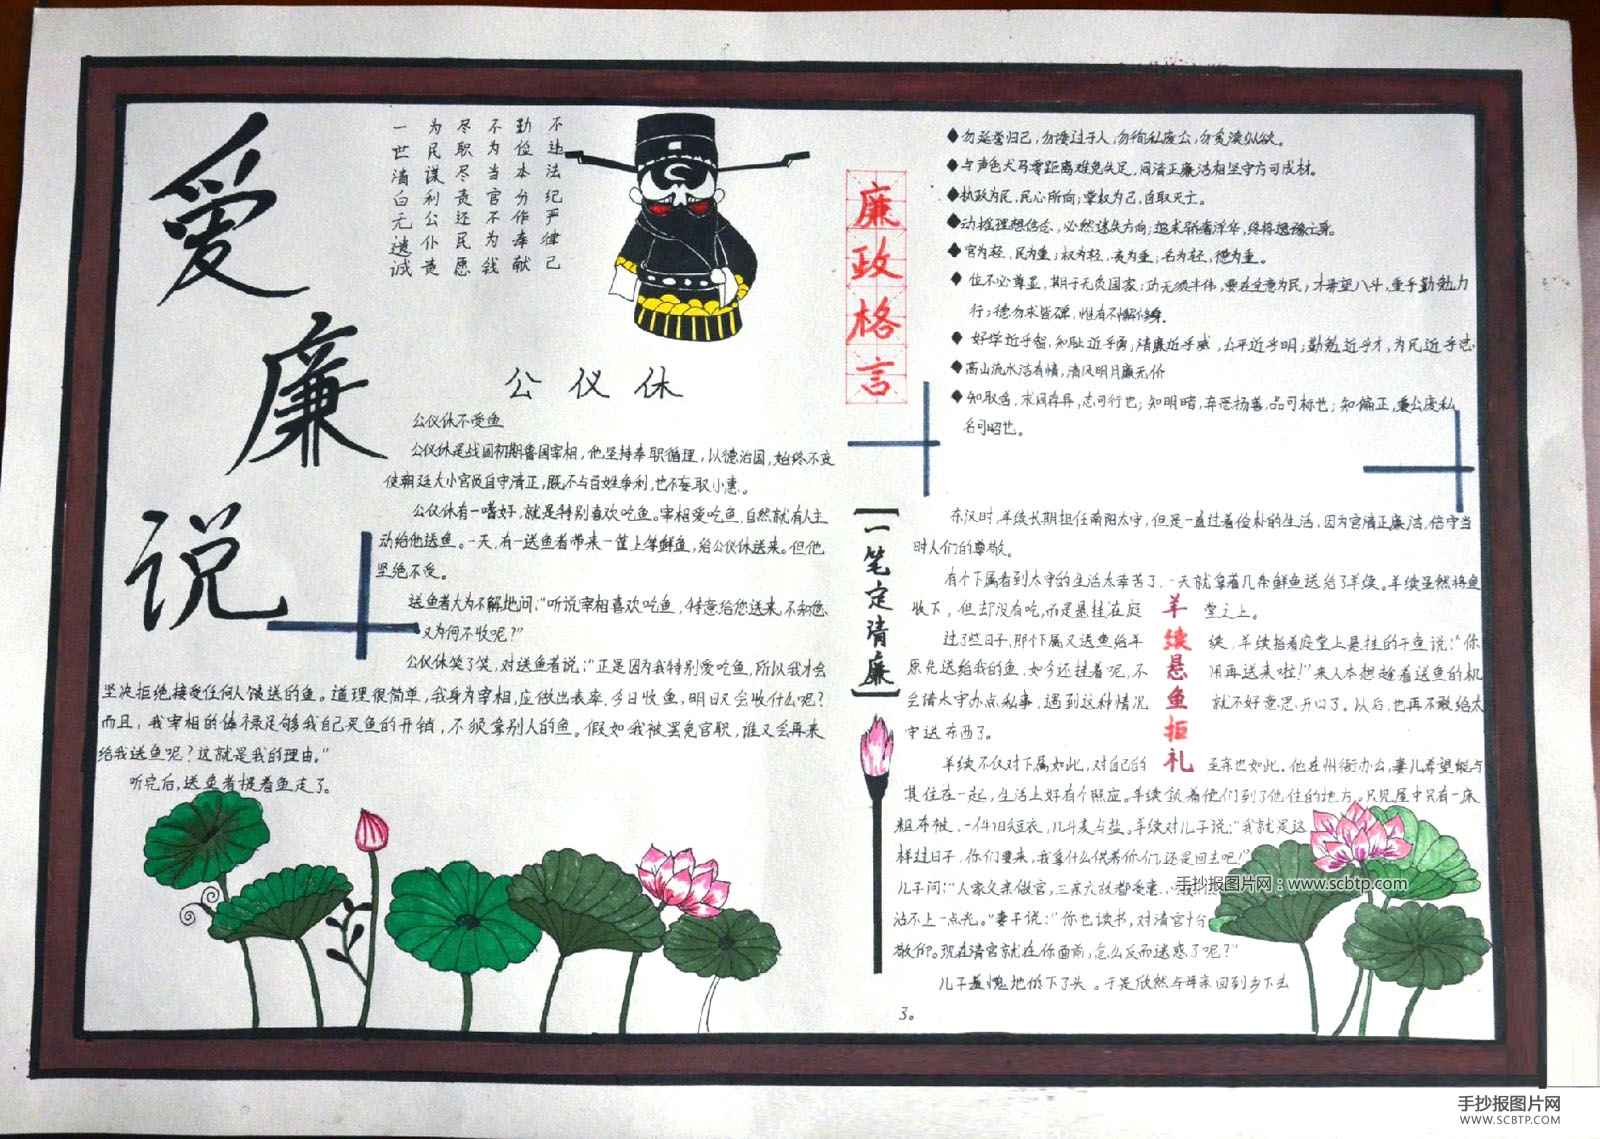 爱廉说
一世清白无遗诚
为民谋利公仆责
尽职尽责还民愿
不为当官不为钱
勤俭本分作奉献
不违法纪严律己
公仪休
公仪休不受鱼
公仪休是战国初期鲁国宰相，他坚持奉职循理，以德治国，始终不变
使朝廷大小官员自守清正，既不与百姓争利，也不妄取小惠。
公仪休有一嗜好，就是特别喜欢吃鱼。宰相爱吃鱼，自然就有人主
动给他送鱼。一天，有一送鱼者带来一筐上等鲜鱼，给公仪休送来。但他
坚绝不受。
送鱼者大为不解地问："听说宰相喜欢吃鱼，特意给您送来，不知您
又为何不收呢？"
公仪休笑了笑，对送鱼者说："正是因为我特别爱吃鱼，所以我才会
坚决拒绝接受任何人馈送的鱼。道理很简单，我身为宰相，应做出表率，今日收鱼，明日又会收什么呢？
而且，我宰相的俸禄足够我自己买鱼的开销，不须拿别人的鱼。假如我被罢免官职，谁又会再来
给我送鱼呢？这就是我的理由。"
听完后，送鱼者提着鱼走了。
廉政格言
◆勿延誉归己，勿诿过于人，勿徇私废公，勿贪渎纵欲。
◆与声色犬马零距离难免失足，同清正廉洁相坚守方可成材。
◆执政为民，民心所向；掌权为己，自取灭亡。
◆动摇理想信念，必然迷失方向；追求骄奢浮华，终将退缘亡身。
◆官为轻，民为重；权为轻，责为重；名为轻，德为重。
◆位不必尊显，期于无负国家；功无须丰伟，要在全意为民；才毋望八斗，重乎勤勉力
行；德勿求皆碑，惟有不懈修身。
◆好学近乎智，知耻近乎勇，清廉近乎威，公平近乎明；勤勉近乎才，为民近乎忠
◆高山流水洁有情，清风明月廉无价
◆知取舍，求同存异，志可行也；知明暗，弃恶扬善，品可标也；知偏正，秉公废私
名可昭也。
【一笔定清廉】
羊续悬鱼拒礼
东汉时，羊续长期担任南阳太守，但是一直过着俭朴的生活，因为官清正廉洁，倍守当
时人们的尊敬。
有个下属看到太守的生活太辛苦了，一天就拿着几条鲜鱼送给了羊续。羊续虽然将鱼
收下，但却没有吃，而是悬挂在庭堂之上。
过了些日子，那个下属又送鱼给羊续，羊续指着庭堂上悬挂的干鱼说："你
原先送给我的鱼，如今还挂着呢，不用再送来啦！"来人本想趁着送鱼的机
会请太守办点私事，遇到这种情况就不好意思开口了。以后，也再不敢给太
守送东西了。
羊续不仅对下属如此，对自己的至亲也如此。他在州衙办公，妻儿希望能与
其住在一起，生活上好有个照应。羊续领着他们到了他住的地方。只见屋中只有一床
粗布被、一件旧短衣，几斗麦与盐。羊续对儿子说："我就是这
样过日子，你们要来，我拿什么供养你们，还是回去吧！"
儿子问："人家父亲做官，三亲六故都受惠，
沾不上一点光。"妻子说："你也读书，对清官十分
敬仰。现在清官就在你面前，怎么反而迷惑了呢？"
儿子羞愧地低下了头。于是欣然与母亲回到乡下去
3。
手抄报图片网：www.scbtp.com
手抄报图片网
WWW.SCBTP.COM